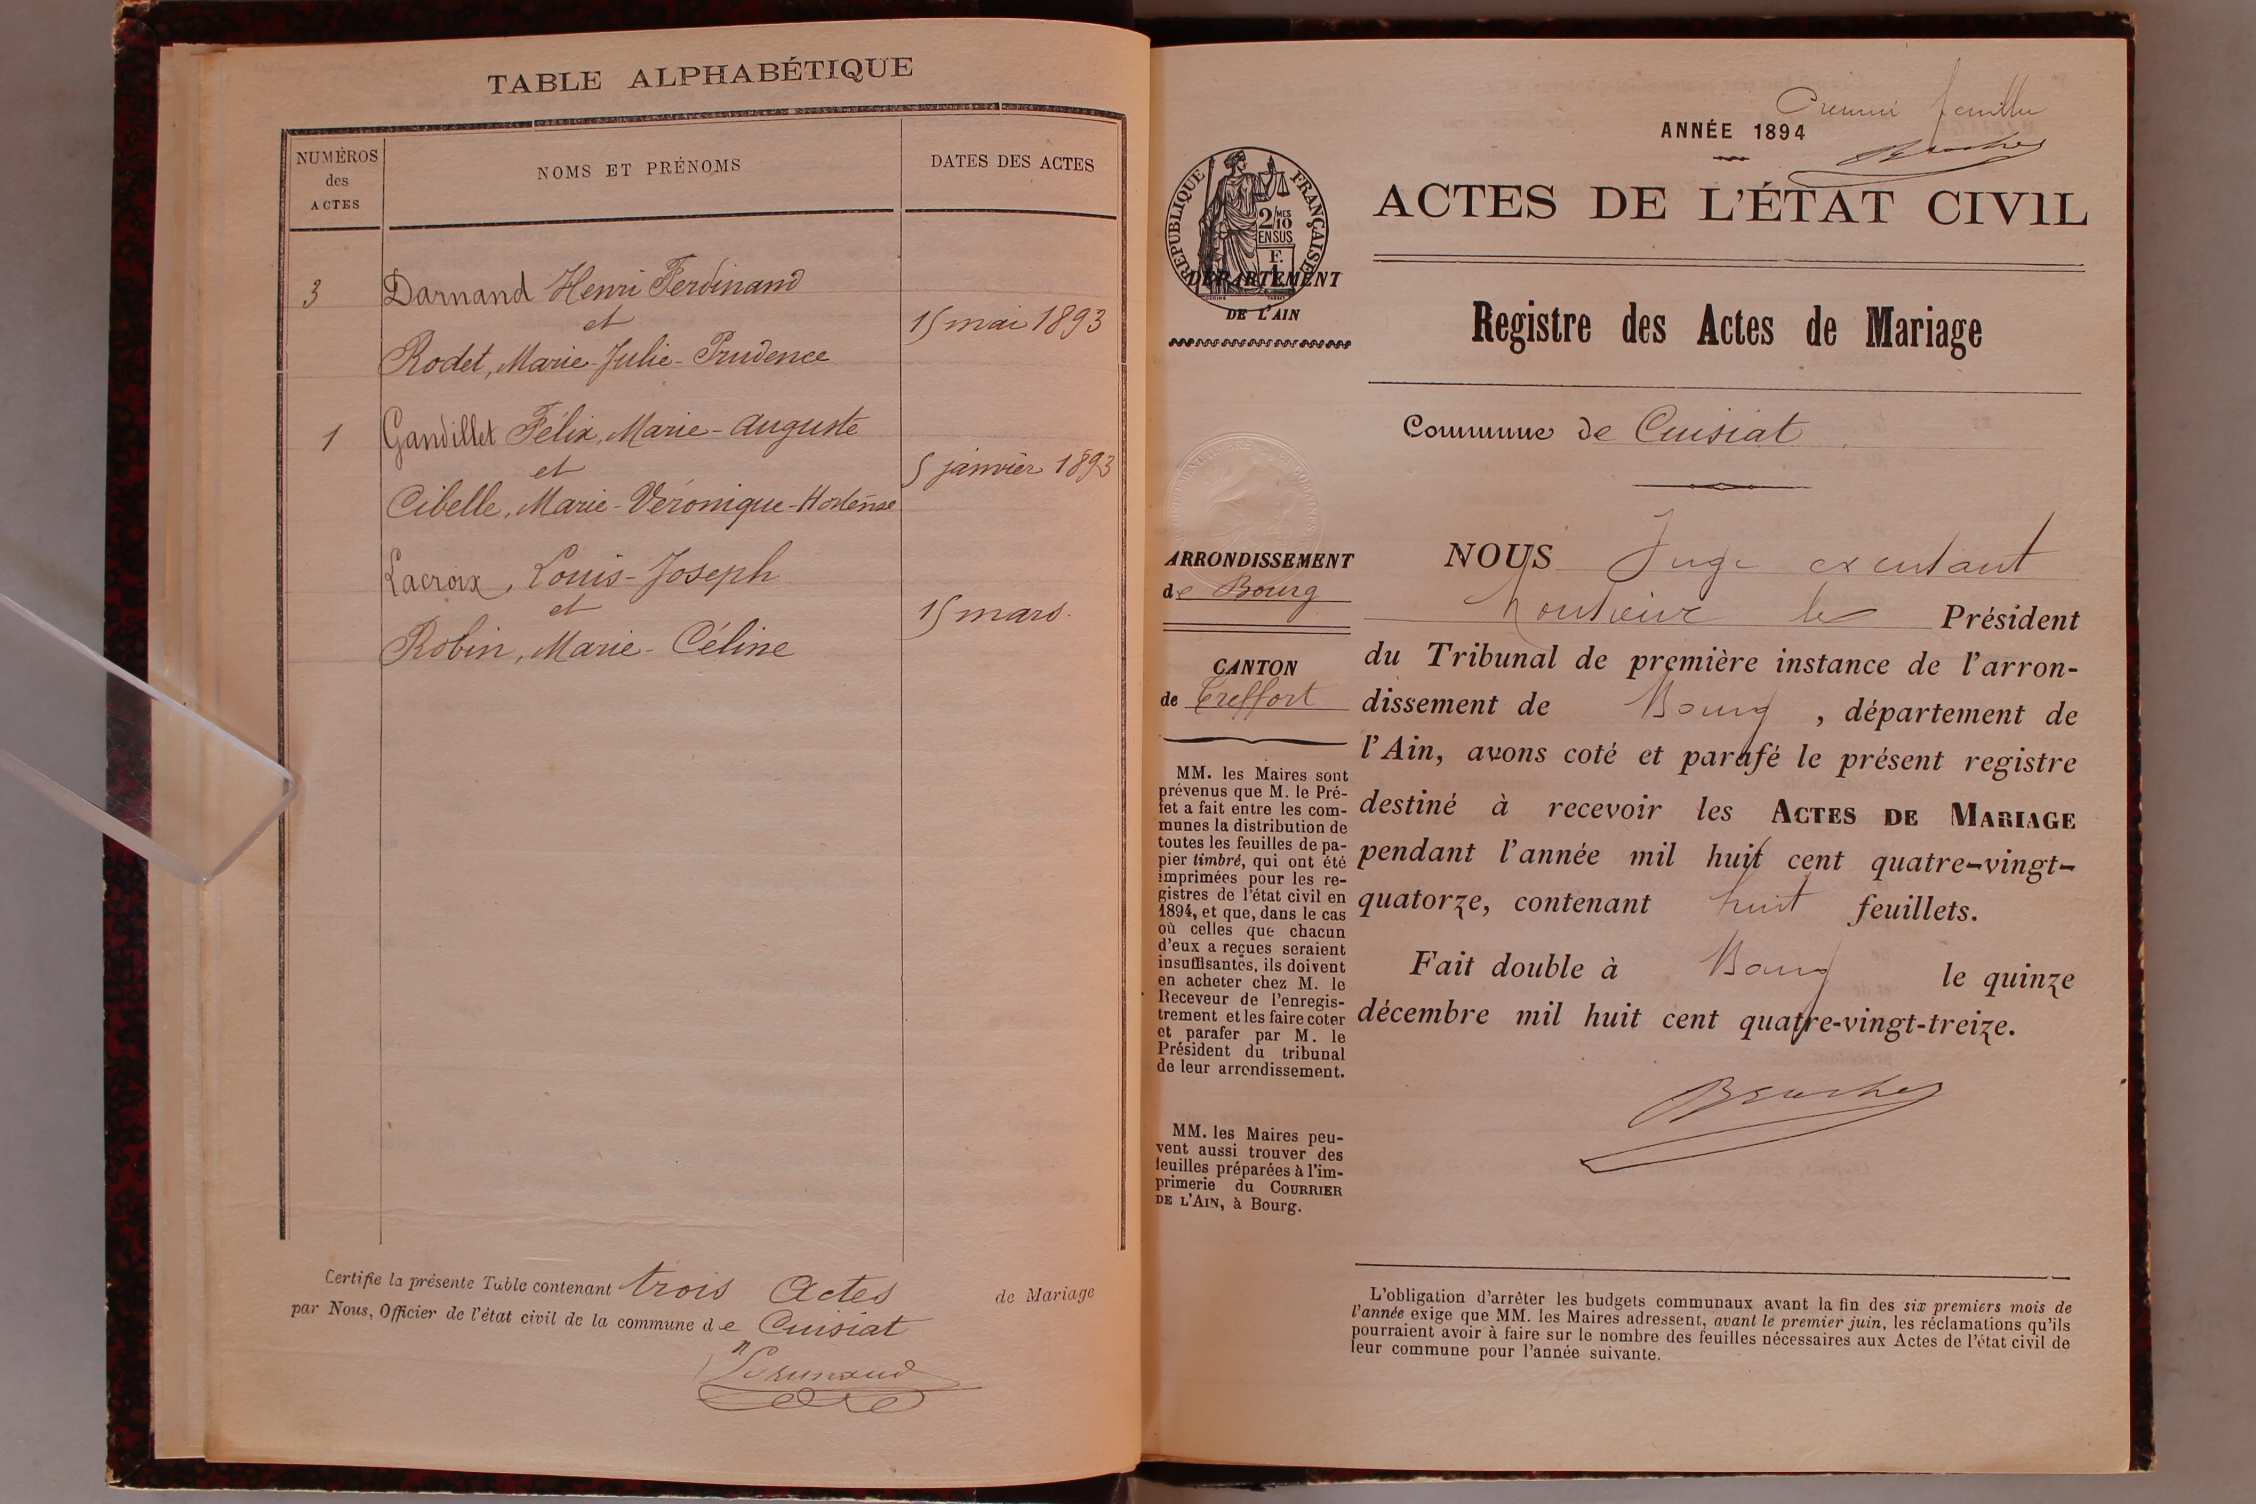 TABLE ALPHABÉTIQUE
NUMÉROS
des
ACTES
NOMS ET PRÉNOMS
DATES DES ACTES
3
Darnand Henri Ferdinand
et
Rodet, Marie-Julie-Prudence
15 mai 1893
1
Gandillet Félix, Marie-Auguste
et
Cibelle, Marie-Véronique-Hortense
5 janvier 1893
Lacroix, Louis-Joseph
et
Robin, Marie-Céline
15 mars.
Certifie la présente Table contenant trois Actes de Mariage
par Nous, Officier de l'état civil de la commune de Cuisiat
ANNÉE 1894
ACTES DE L'ÉTAT CIVIL
RÉPUBLIQUE FRANÇAISE
2/10 MES
EN SUS
F.
1
DÉPARTEMENT
DE L'AIN
Registre des Actes de Mariage
Commune de Cuisiat
ARRONDISSEMENT
de Bourg
CANTON
de Treffort
MM. les Maires sont
prévenus que M. le Pré-
fet a fait entre les com-
munes la distribution de
toutes les feuilles de pa-
pier timbré, qui ont été
imprimées pour les re-
gistres de l'état civil en
1894, et que, dans le cas
où celles que chacun
d'eux a reçues seraient
insuffisantes, ils doivent
en acheter chez M. le
Receveur de l'enregis-
trement et les faire coter
et parafer par M. le
Président du tribunal
de leur arrondissement.
MM. les Maires peu-
vent aussi trouver des
feuilles préparées à l'im-
primerie du COURRIER
DE L'AIN, à Bourg.
NOUS Juge excutant
Monsieur le Président
du Tribunal de première instance de l'arron-
dissement de Bourg, département de
l'Ain, avons coté et parafé le présent registre
destiné à recevoir les ACTES DE MARIAGE
pendant l'année mil huit cent quatre-vingt-
quatorze, contenant huit feuillets.
Fait double à Bourg le quinze
décembre mil huit cent quatre-vingt-treize.
L'obligation d'arrêter les budgets communaux avant la fin des six premiers mois de
l'année exige que MM. les Maires adressent, avant le premier juin, les réclamations qu'ils
pourraient avoir à faire sur le nombre des feuilles nécessaires aux Actes de l'état civil de
leur commune pour l'année suivante.